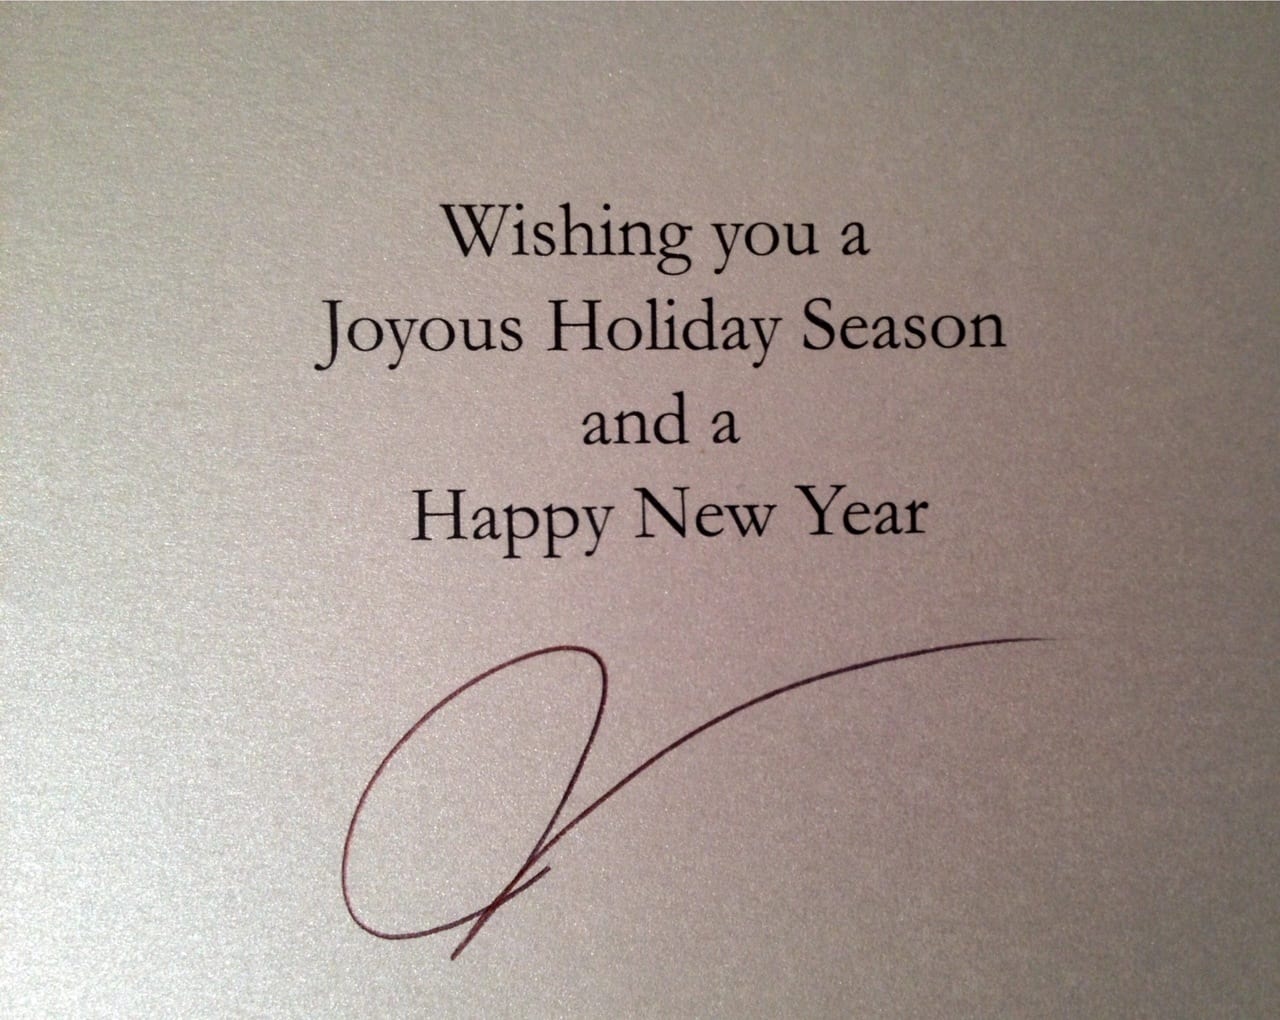 Wishing you a
Joyous Holiday Season
and a
Happy New Year